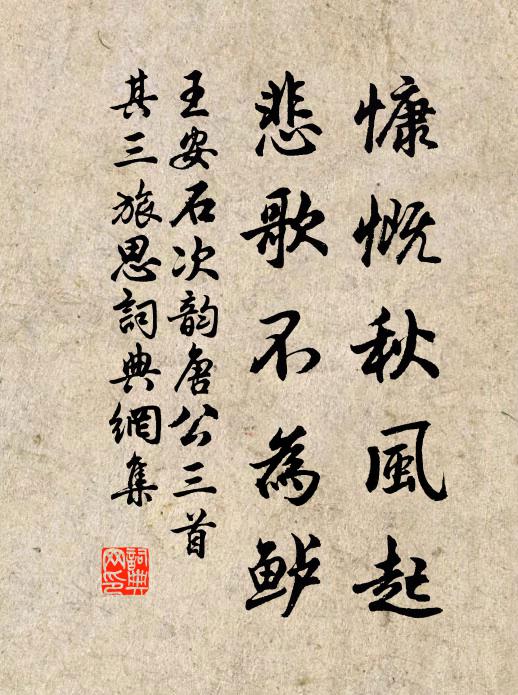 慷慨秋風起
悲歌不為鲈
王安石次韵唐公三首
其三旅思詞典網集
詞典網印